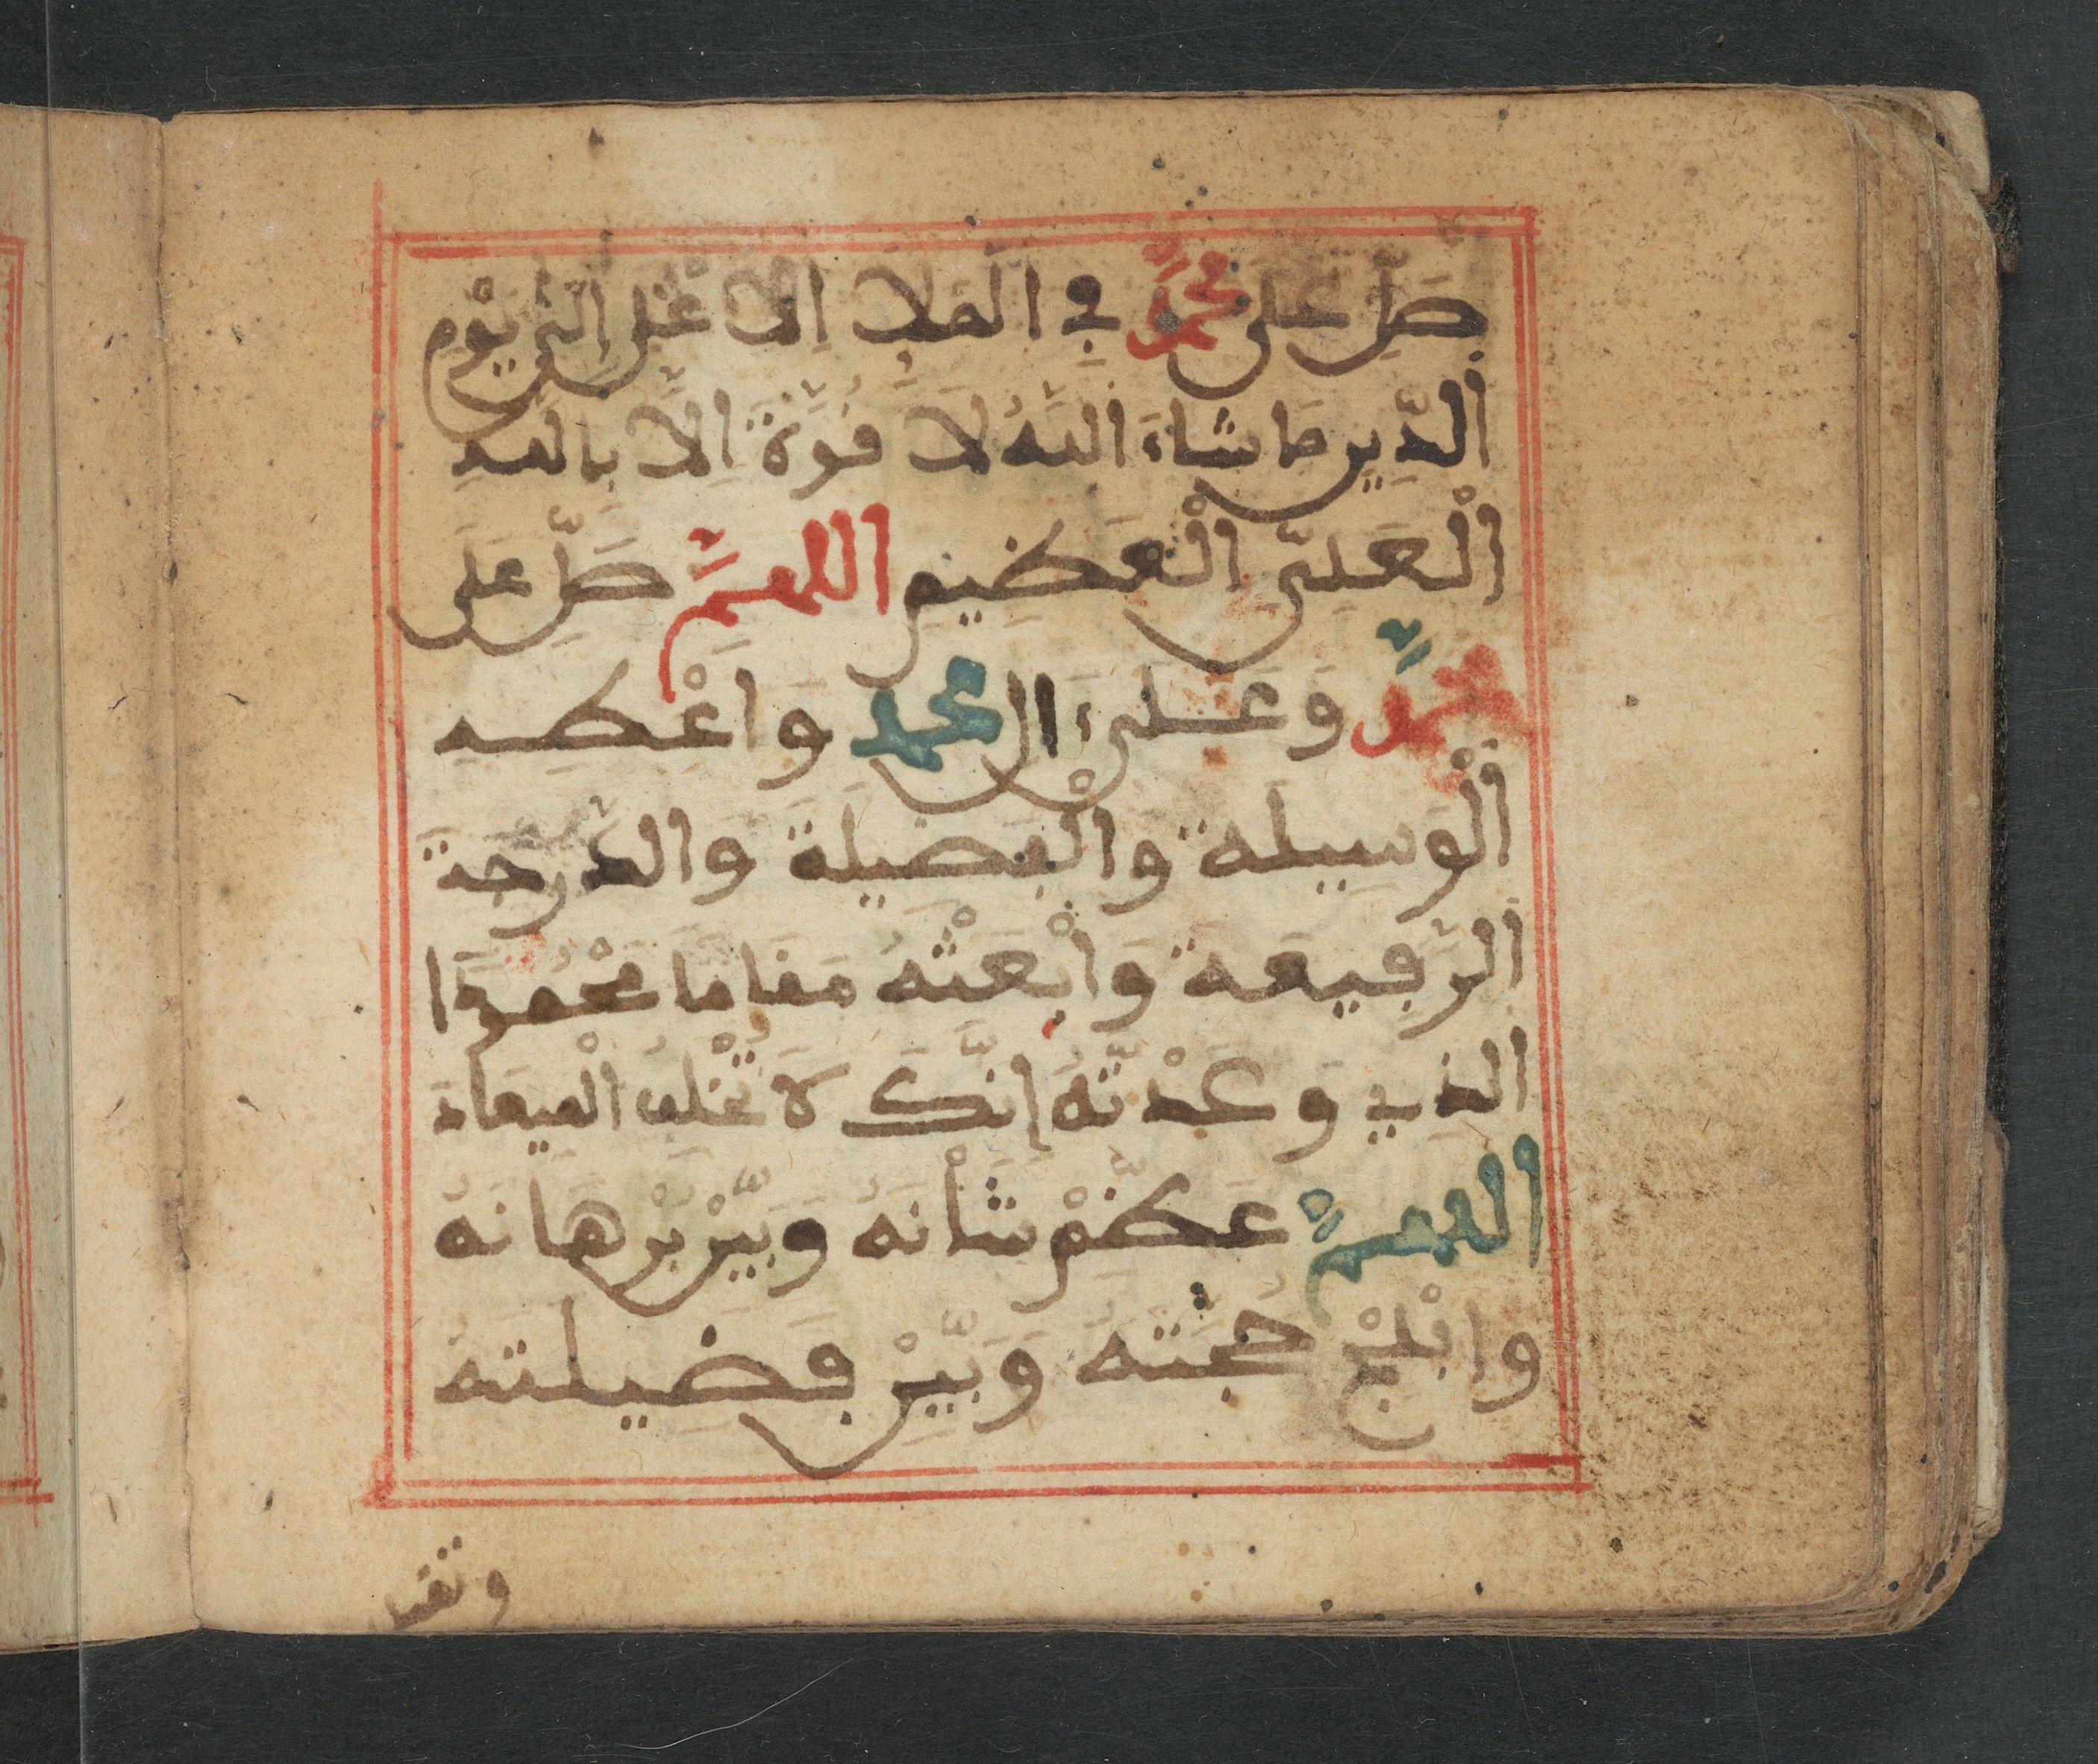 صَلِّ عَلَى مُحَمَّدٍ فِي الْمَلَإِ الَاعْلَى إِلَى يَوْمِ
الدِّينِ مَا شَاءَ اللَّهُ لَا قُوَّةَ إِلَّا بِاللَّهِ
الْعَلِيِّ الْعَظِيمِ اللَّهُمَّ صَلِّ عَلَى
مُحَمَّدٍ وَعَلَى ءَالِ مُحَمَّدٍ وَاعْطِهِ
الْوَسِيلَةَ وَالْفَضِيلَةَ وَالدَّرَجَةَ
الرَّفِيعَةَ وَابْعَثْهُ مَقَامًا مَحْمُودًا
الذِي وَعَدتَّهُ إِنَّكَ لَا تُخْلِفُ الْمِيعَادَ
اللَّهُمَّ عَظِّمْ شَأْنَهُ وَبَيِّنْ بُرْهَانَهُ
وَابْلِجْ حُجَّتَهُ وَبَيِّنْ فَضِيلَتَهُ
وتقبل